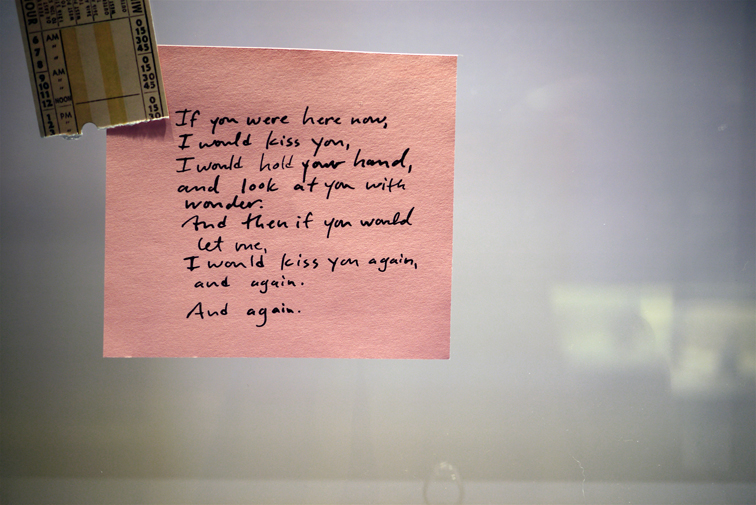 HOUR
MIN
6
7
8
9
10
11
12
1
2
AM
"
"
AM
"
"
NOON
PM
"
0
15
30
45
0
15
30
45
0
15
30
If you were here now,
I would kiss you,
I would hold your hand,
and look at you with
wonder.
And then if you would
let me,
I would kiss you again,
and again.
And again.